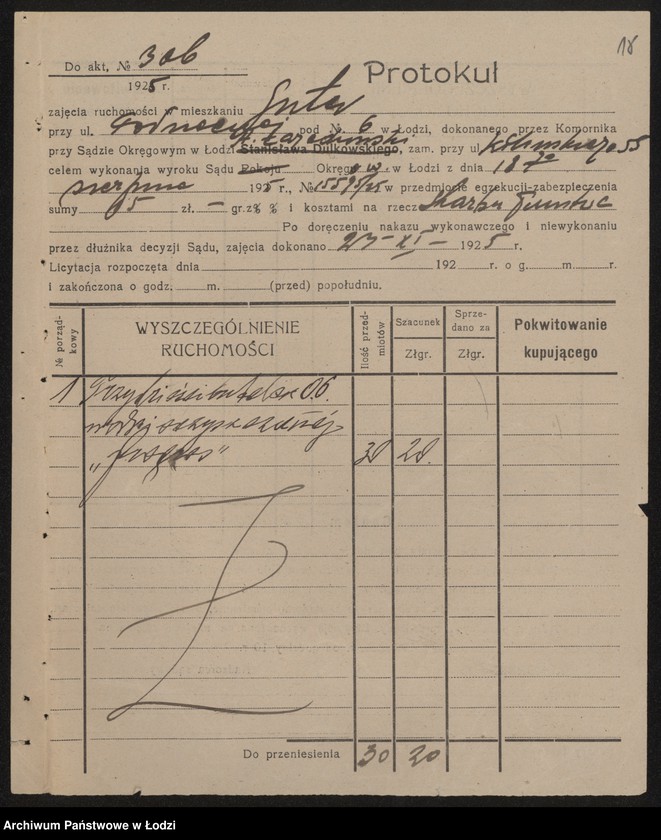 18
Do akt, № 306
1925 r.
Protokuł
zajęcia ruchomości w mieszkaniu
przy ul. pod № 6 w Łodzi, dokonanego przez Komornika
przy Sądzie Okręgowym w Łodzi Stanisława Dulkowskiego, zam. przy ul. 55
celem wykonania wyroku Sądu Pokoju Okręg w Łodzi z dnia 18
sierpnia 1925 r., № w przedmiocie egzekucji-zabezpieczenia
sumy zł. — gr. z % % i kosztami na rzecz Skarbu
Po doręczeniu nakazu wykonawczego i niewykonaniu
przez dłużnika decyzji Sądu, zajęcia dokonano 27-XI- 1925 r.
Licytacja rozpoczęta dnia 192 r. o g. m. r.
i zakończona o godz. m. (przed) popołudniu.
№ porządkowy
WYSZCZEGÓLNIENIE RUCHOMOŚCI
Ilość przedmiotów
Szacunek
Złgr.
Sprzedano za
Złgr.
Pokwitowanie kupującego
1 Trzydzieści butelek 06.
30 20.
Do przeniesienia 30 20
Archiwum Państwowe w Łodzi